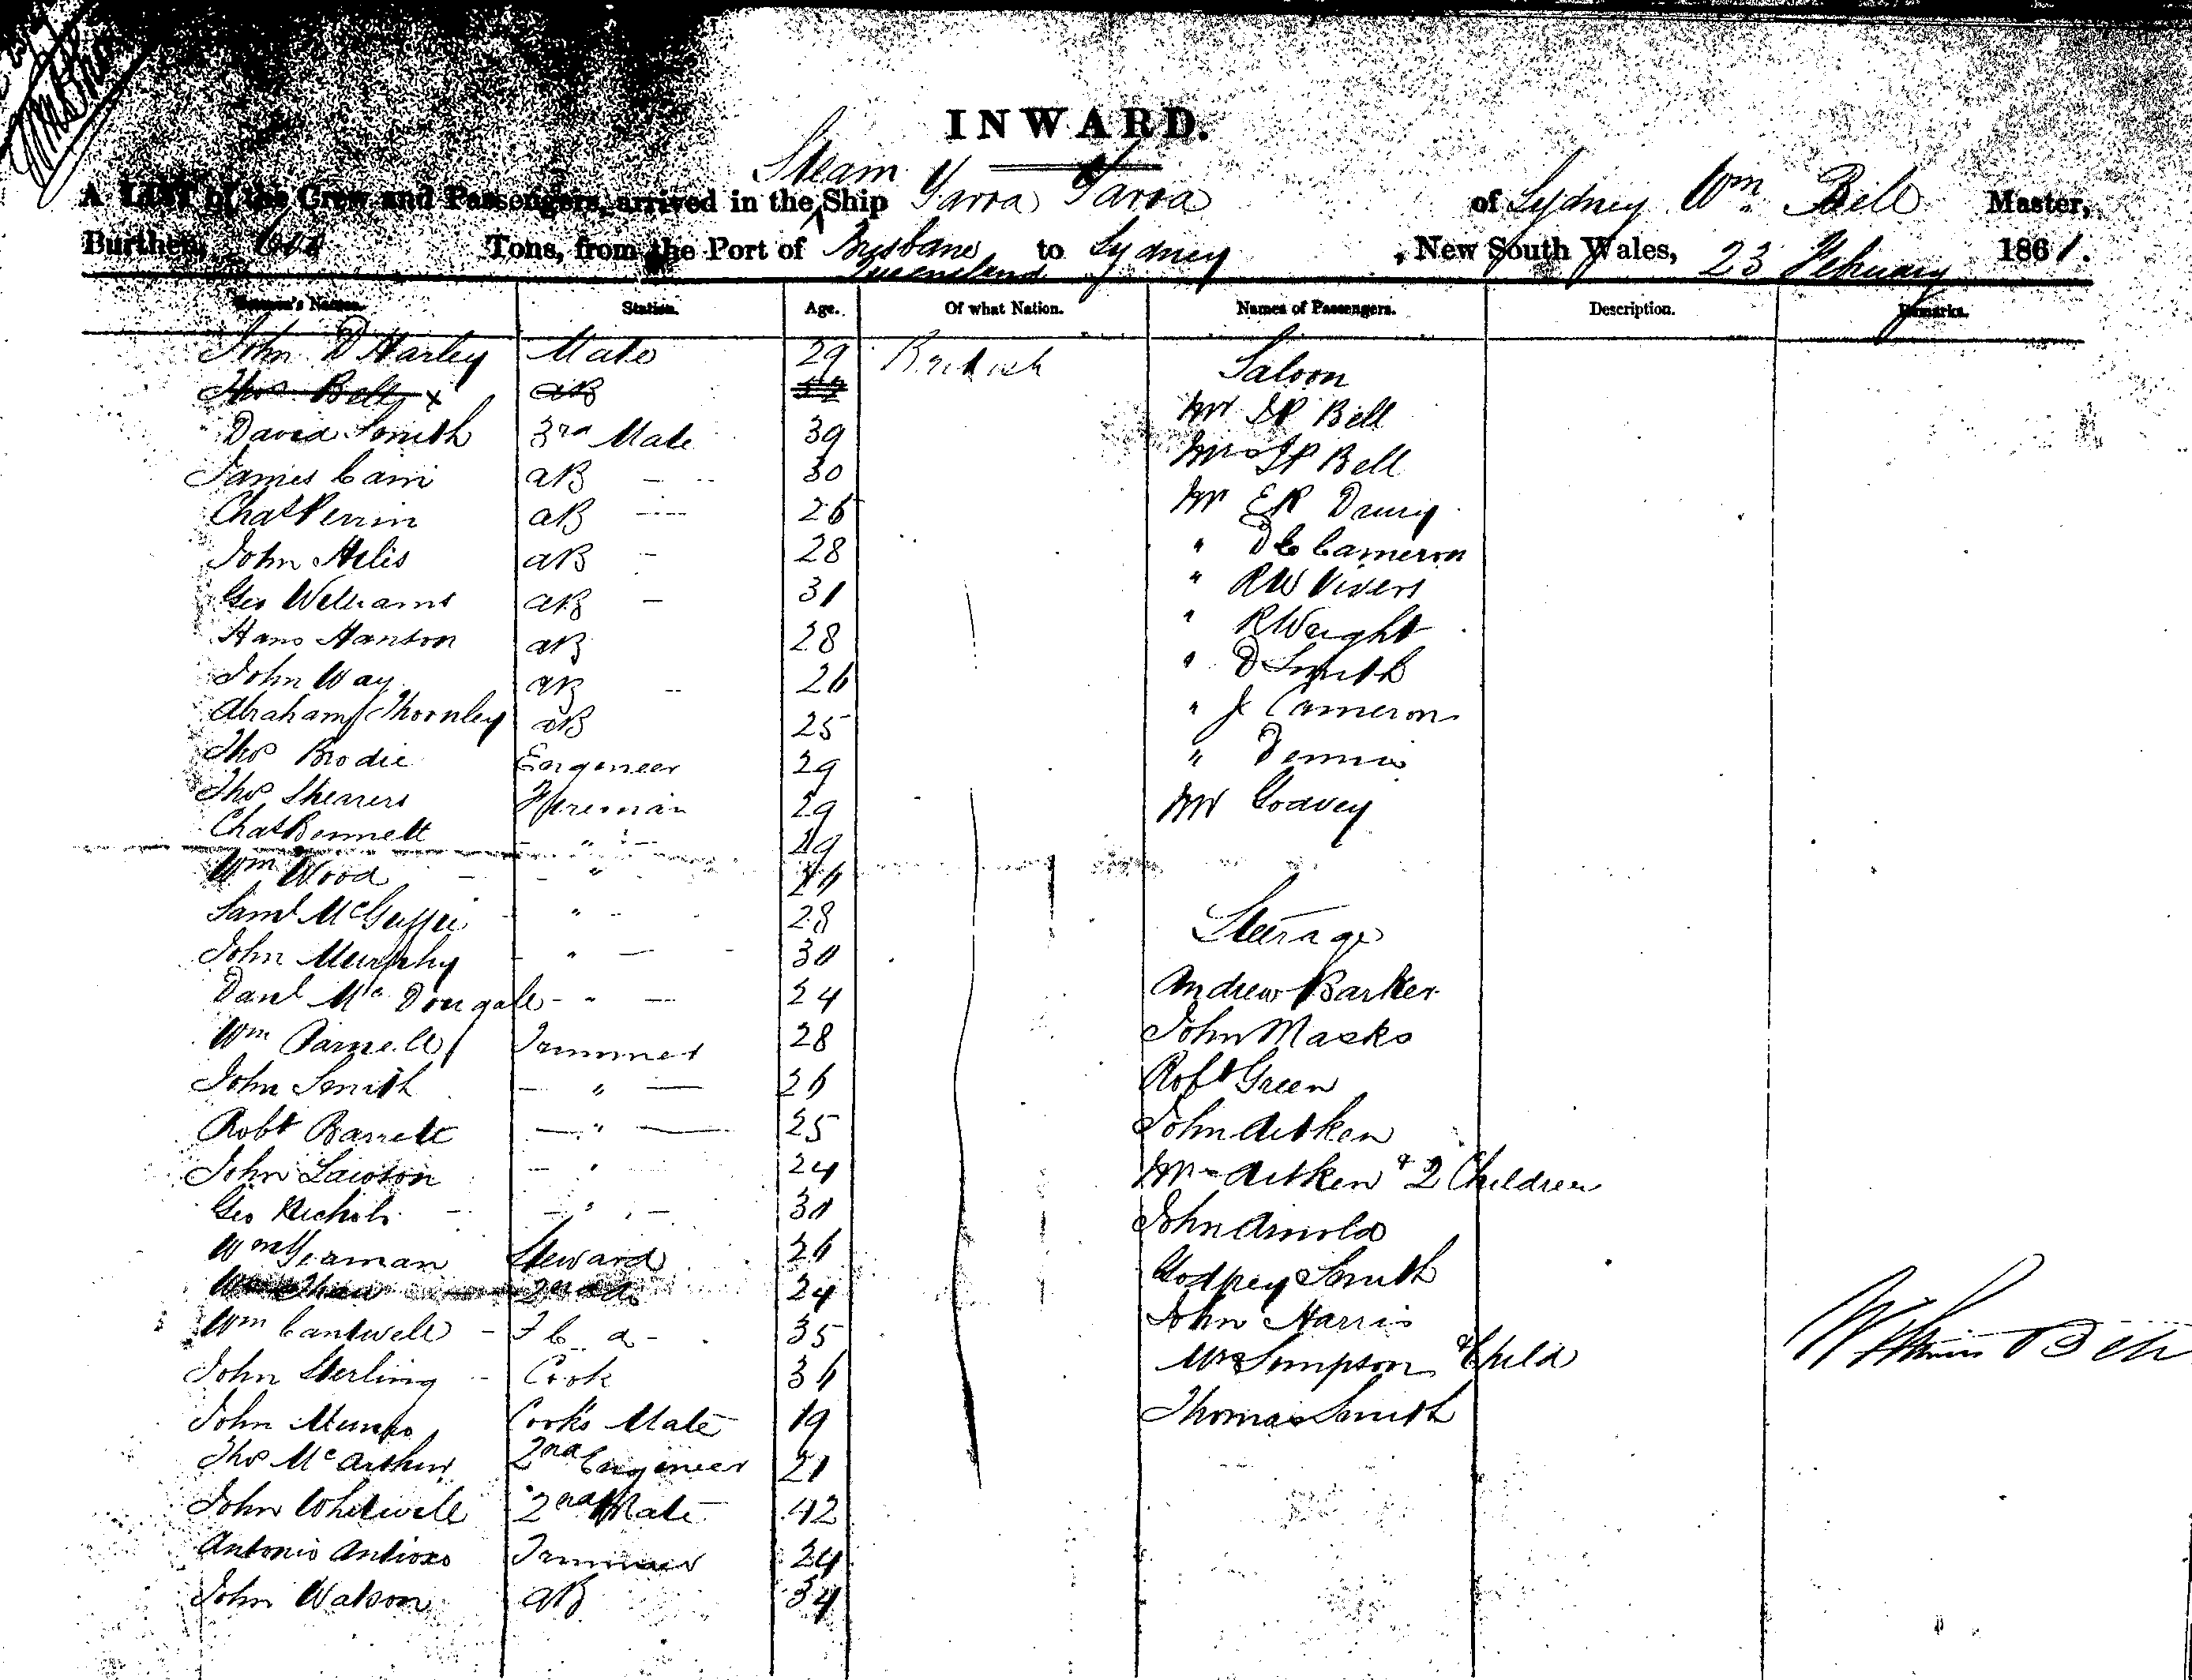 INWARD.
Steam
A LIST of the Crew and Passengers, arrived in the Ship Yarra Yarra of Sydney Wm Bell Master,
Burthen, Tons, from the Port of Brisbane to Sydney, New South Wales, 23 February 1861.
Queensland
Seamen's Names. Station. Age. Of what Nation. Names of Passengers. Description. Remarks.
John D Harley Mate 29 British Saloon
Thos Bell x AB
Mr JP Bell
David Smith 3rd Mate 39
Mrs JP Bell
James Cain AB 30
Mr ER Drury
Chas Perrin AB 26
" DC Cameron
John Helis AB 28
" RW Vivers
Geo Williams AB 31
" R Wright
Hans Hanson AB 28
" D Smith
John Way AB 26
" J Cameron
Abraham Thornley AB 25
" Dennis
Thos Brodie Engineer 29
Mr Godvey
Thos Shearers Fireman 29
Chas Bennett " 29
Wm Wood " 26
Saml McGuffie " 28
Steerage
John Murphy " 30
Andrew Barker
Danl McDougale " 24
John Masko
Wm Parnell Trimmer 28
Robt Green
John Smith " 26
John Aitken
Robt Barrett " 25
Mrs Aitken & 2 Children
John Lawson " 24
John Arnold
Geo Nichols " 30
Godfrey Smith
Wm German Steward 26
John Harris
Wm Shaw 2nd do 24
Mrs Simpson & Child
Wm Cantwell F C 35
Thomas Smith
John Sterling Cook 36
John Munro Cook's Mate 19
Thos McArthur 2nd Engineer 21
John Whitwell 2nd Mate 42
Antonio Antioxo Trimmer 24
John Watson AB 34
William Bell